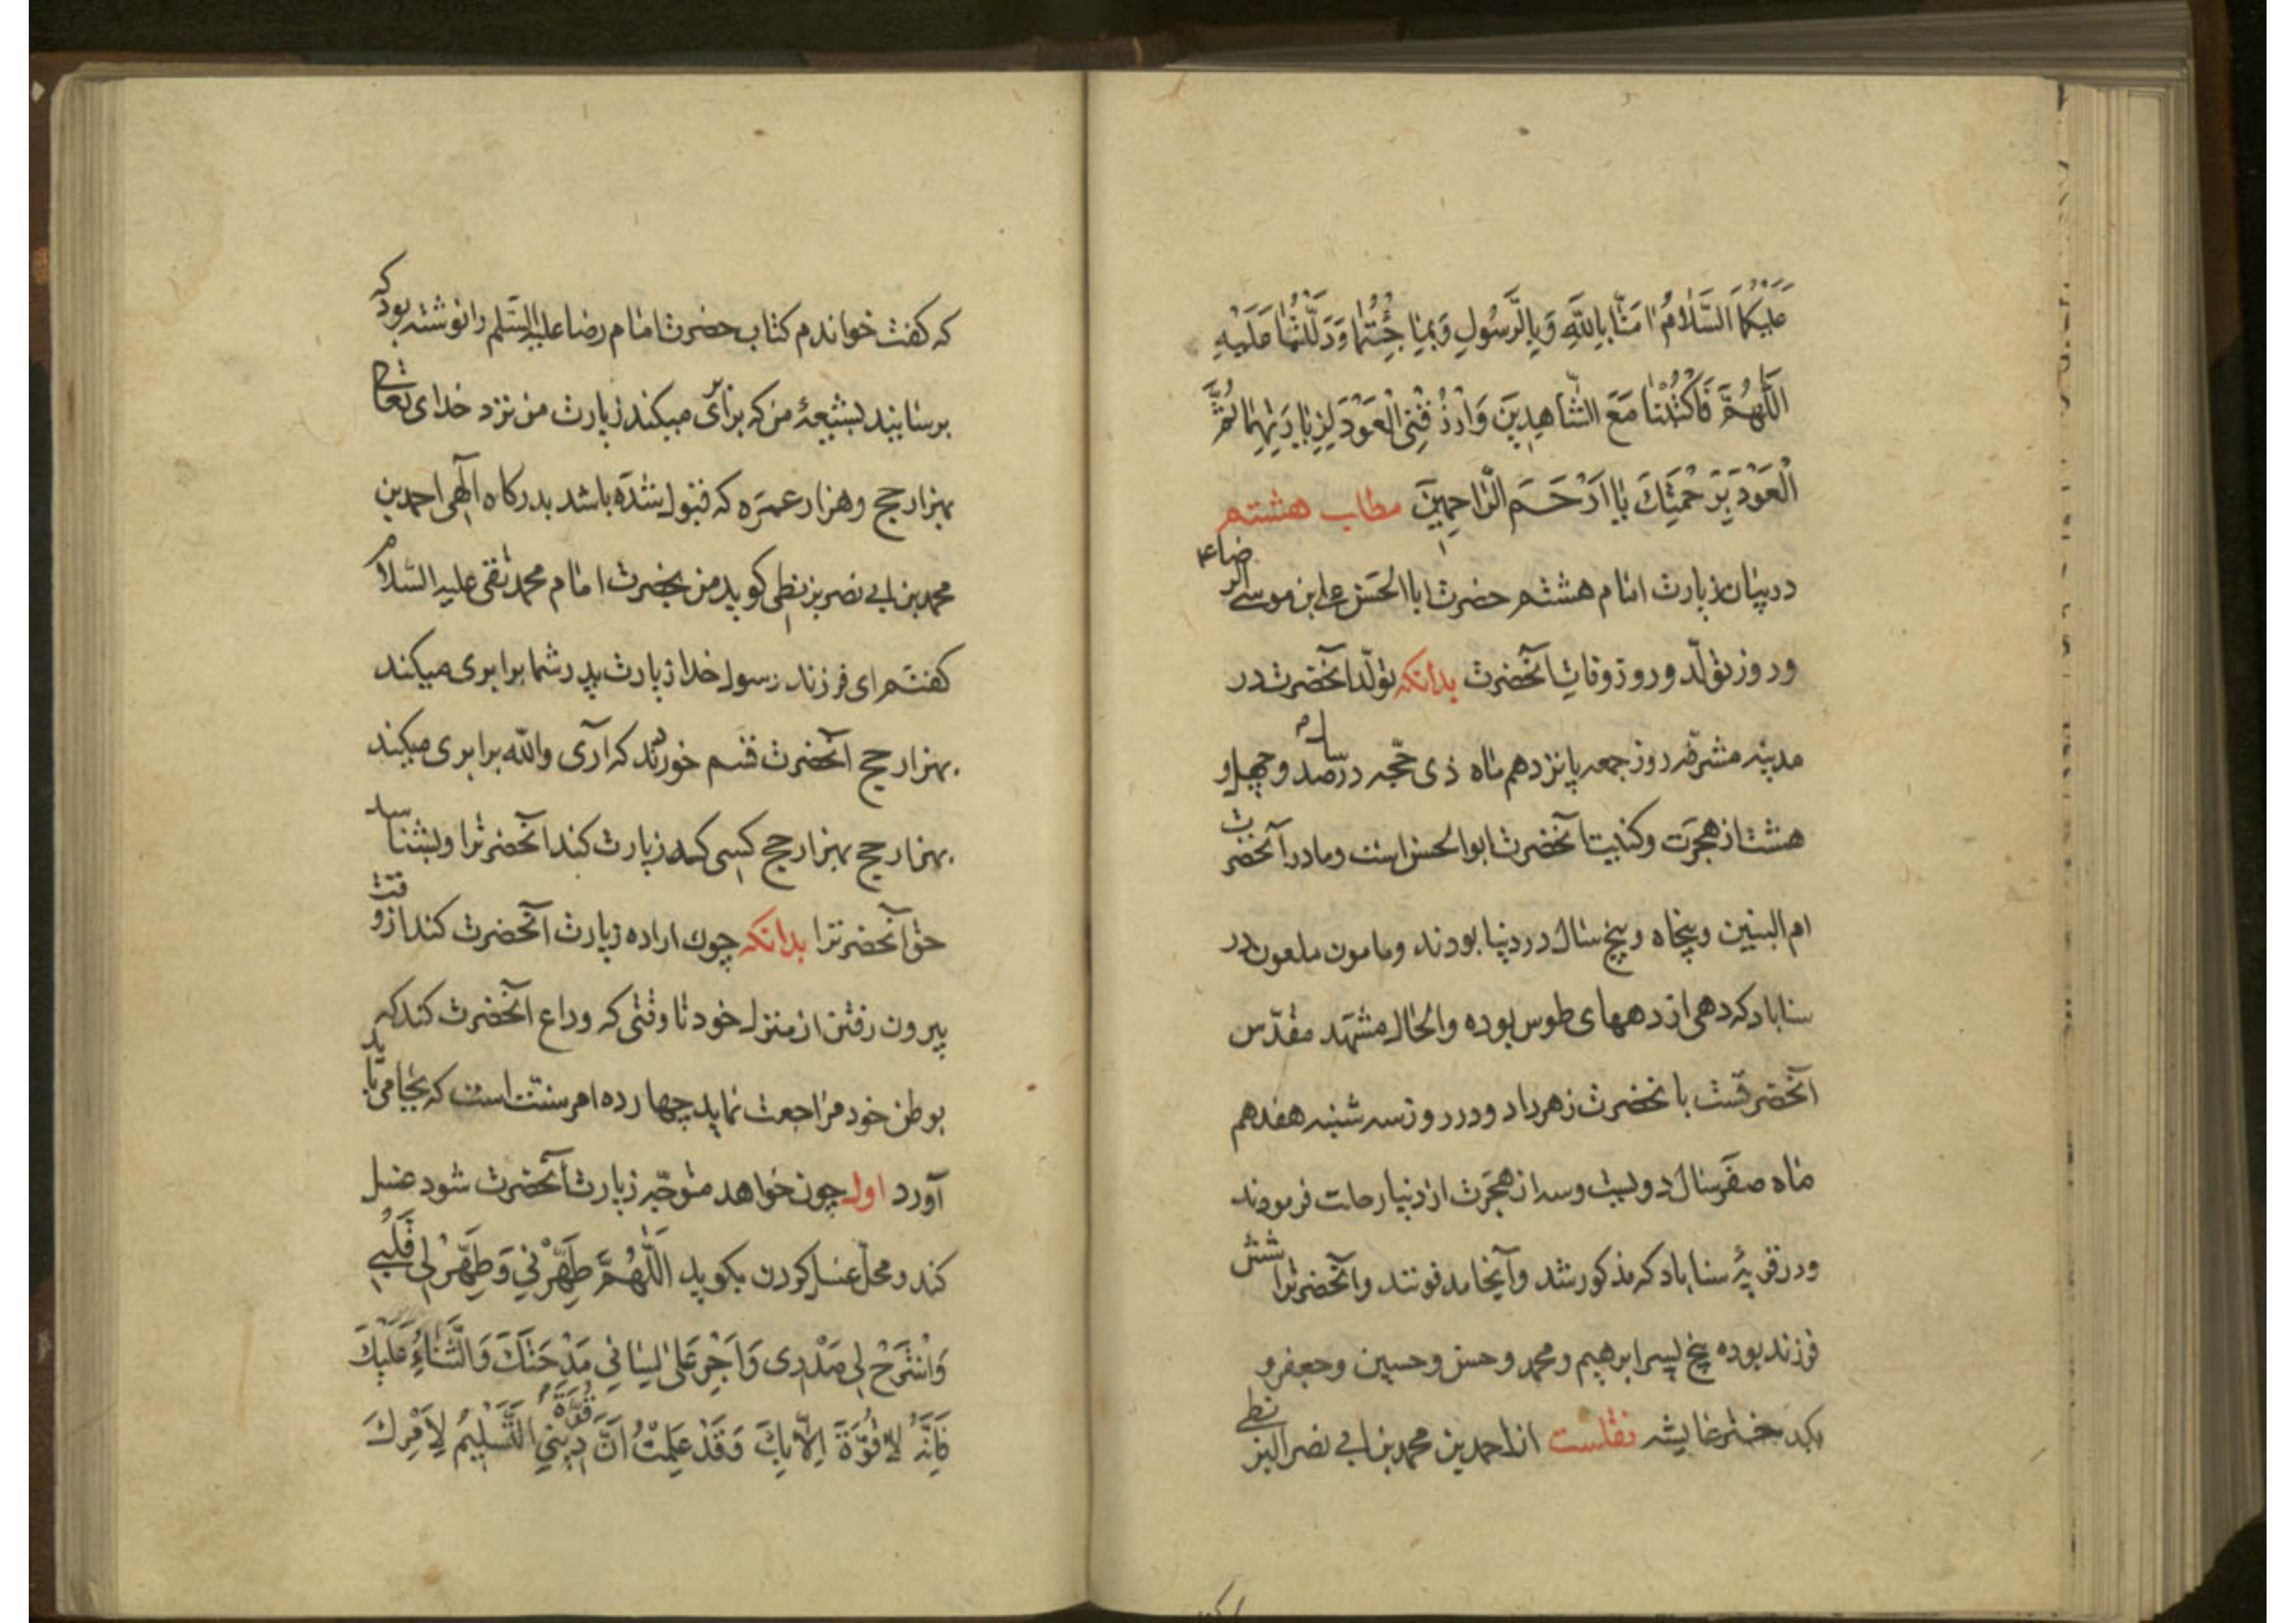 عَلَيْكُمَا السَّلَامُ اٰمَنَّا بِاللّٰهِ وَبِالرَّسُولِ وَبِمَا جِئْتُمَا وَدَلَلْتُمَا عَلَيْهِ
اَللّٰهُمَّ فَاكْتُبْنَا مَعَ الشَّاهِدِينَ وَارْزُقْنِى الْعَوْدَ لِزِيَارَتِهِمَا ثُمَّ
الْعَوْدَ بِرَحْمَتِكَ يَا اَرْحَمَ الرَّاحِمِينَ مطلب هشتم
در بیان زیارت امام هشتم حضرت ابا الحسن علی ابن موسی الرضا ع
و روز تولّد و روز وفات آنحضرت بدانکه تولّد آنحضرت در
مدینه مشرفه روز جمعه پانزدهم ماه ذی حجّه در سال صد و چهل و
هشت از هجرت و کنیت آنحضرت ابو الحسن است و مادر آنحضرت
ام البنین و پنجاه و پنج سال در دنیا بودند و مامون ملعون در
سناباد که دهی از دههای طوس بوده و الحال مشهد مقدّس
آنحضرتست بانحضرت زهر داد و در روز سه شنبه هفدهم
ماه صفر سال دویست و سه از هجرت از دنیا رحلت فرمودند
و در قریهٔ سناباد که مذکور شد و آنجا مدفونند و آنحضرترا شش
فرزند بوده پنج پسر ابرهیم و محمد و حسن و حسین و جعفر و
یکدختر عایشه نقلست از احمد بن محمد بن ابی نصر البزنطی
که گفت خواندم کتاب حضرت امام رضا علیه السّلم را نوشته بود که
برسانید بشیعهٔ من که برابری میکند زیارت من نزد خدای تعالی
بهزار حج و هزار عمره که قبول شده باشد بدرکاه آلهی احمد بن
محمد بن ابی نصر بزنطی کوید من بحضرت امام محمد تقی علیه السّلام
کفتم ای فرزند رسول خدا زیارت پدر شما برابری میکند
بهزار حج آنحضرت قسم خوردند که آری والله برابری میکند
بهزار حج بهزار حج کسی که زیارت کند آنحضرترا و بشناسد
حق آنحضرترا بدانکه چون اراده زیارت آنحضرت کند از وقت
بیرون رفتن از منزل خود تا وقتی که وداع آنحضرت کند که
بوطن خود مراجعت نماید چهارده امر سنّت است که بجا می باید
آورد اول چون خواهد متوجّه زیارت آنحضرت شود غسل
کند و محلّ غسل کردن بکوید اَللّٰهُمَّ طَهِّرْنِي وَطَهِّرْ لِي قَلْبِي
وَاشْرَحْ لِي صَدْرِى وَاَجْرِ عَلىٰ لِسَانِي مَدْحَتَكَ وَالثَّنَاءَ عَلَيْكَ
فَاِنَّهُ لَا قُوَّةَ اِلَّا بِكَ وَقَدْ عَلِمْتُ اَنَّ قُوَّةَ دِينِي التَّسْلِيمُ لِاَمْرِكَ